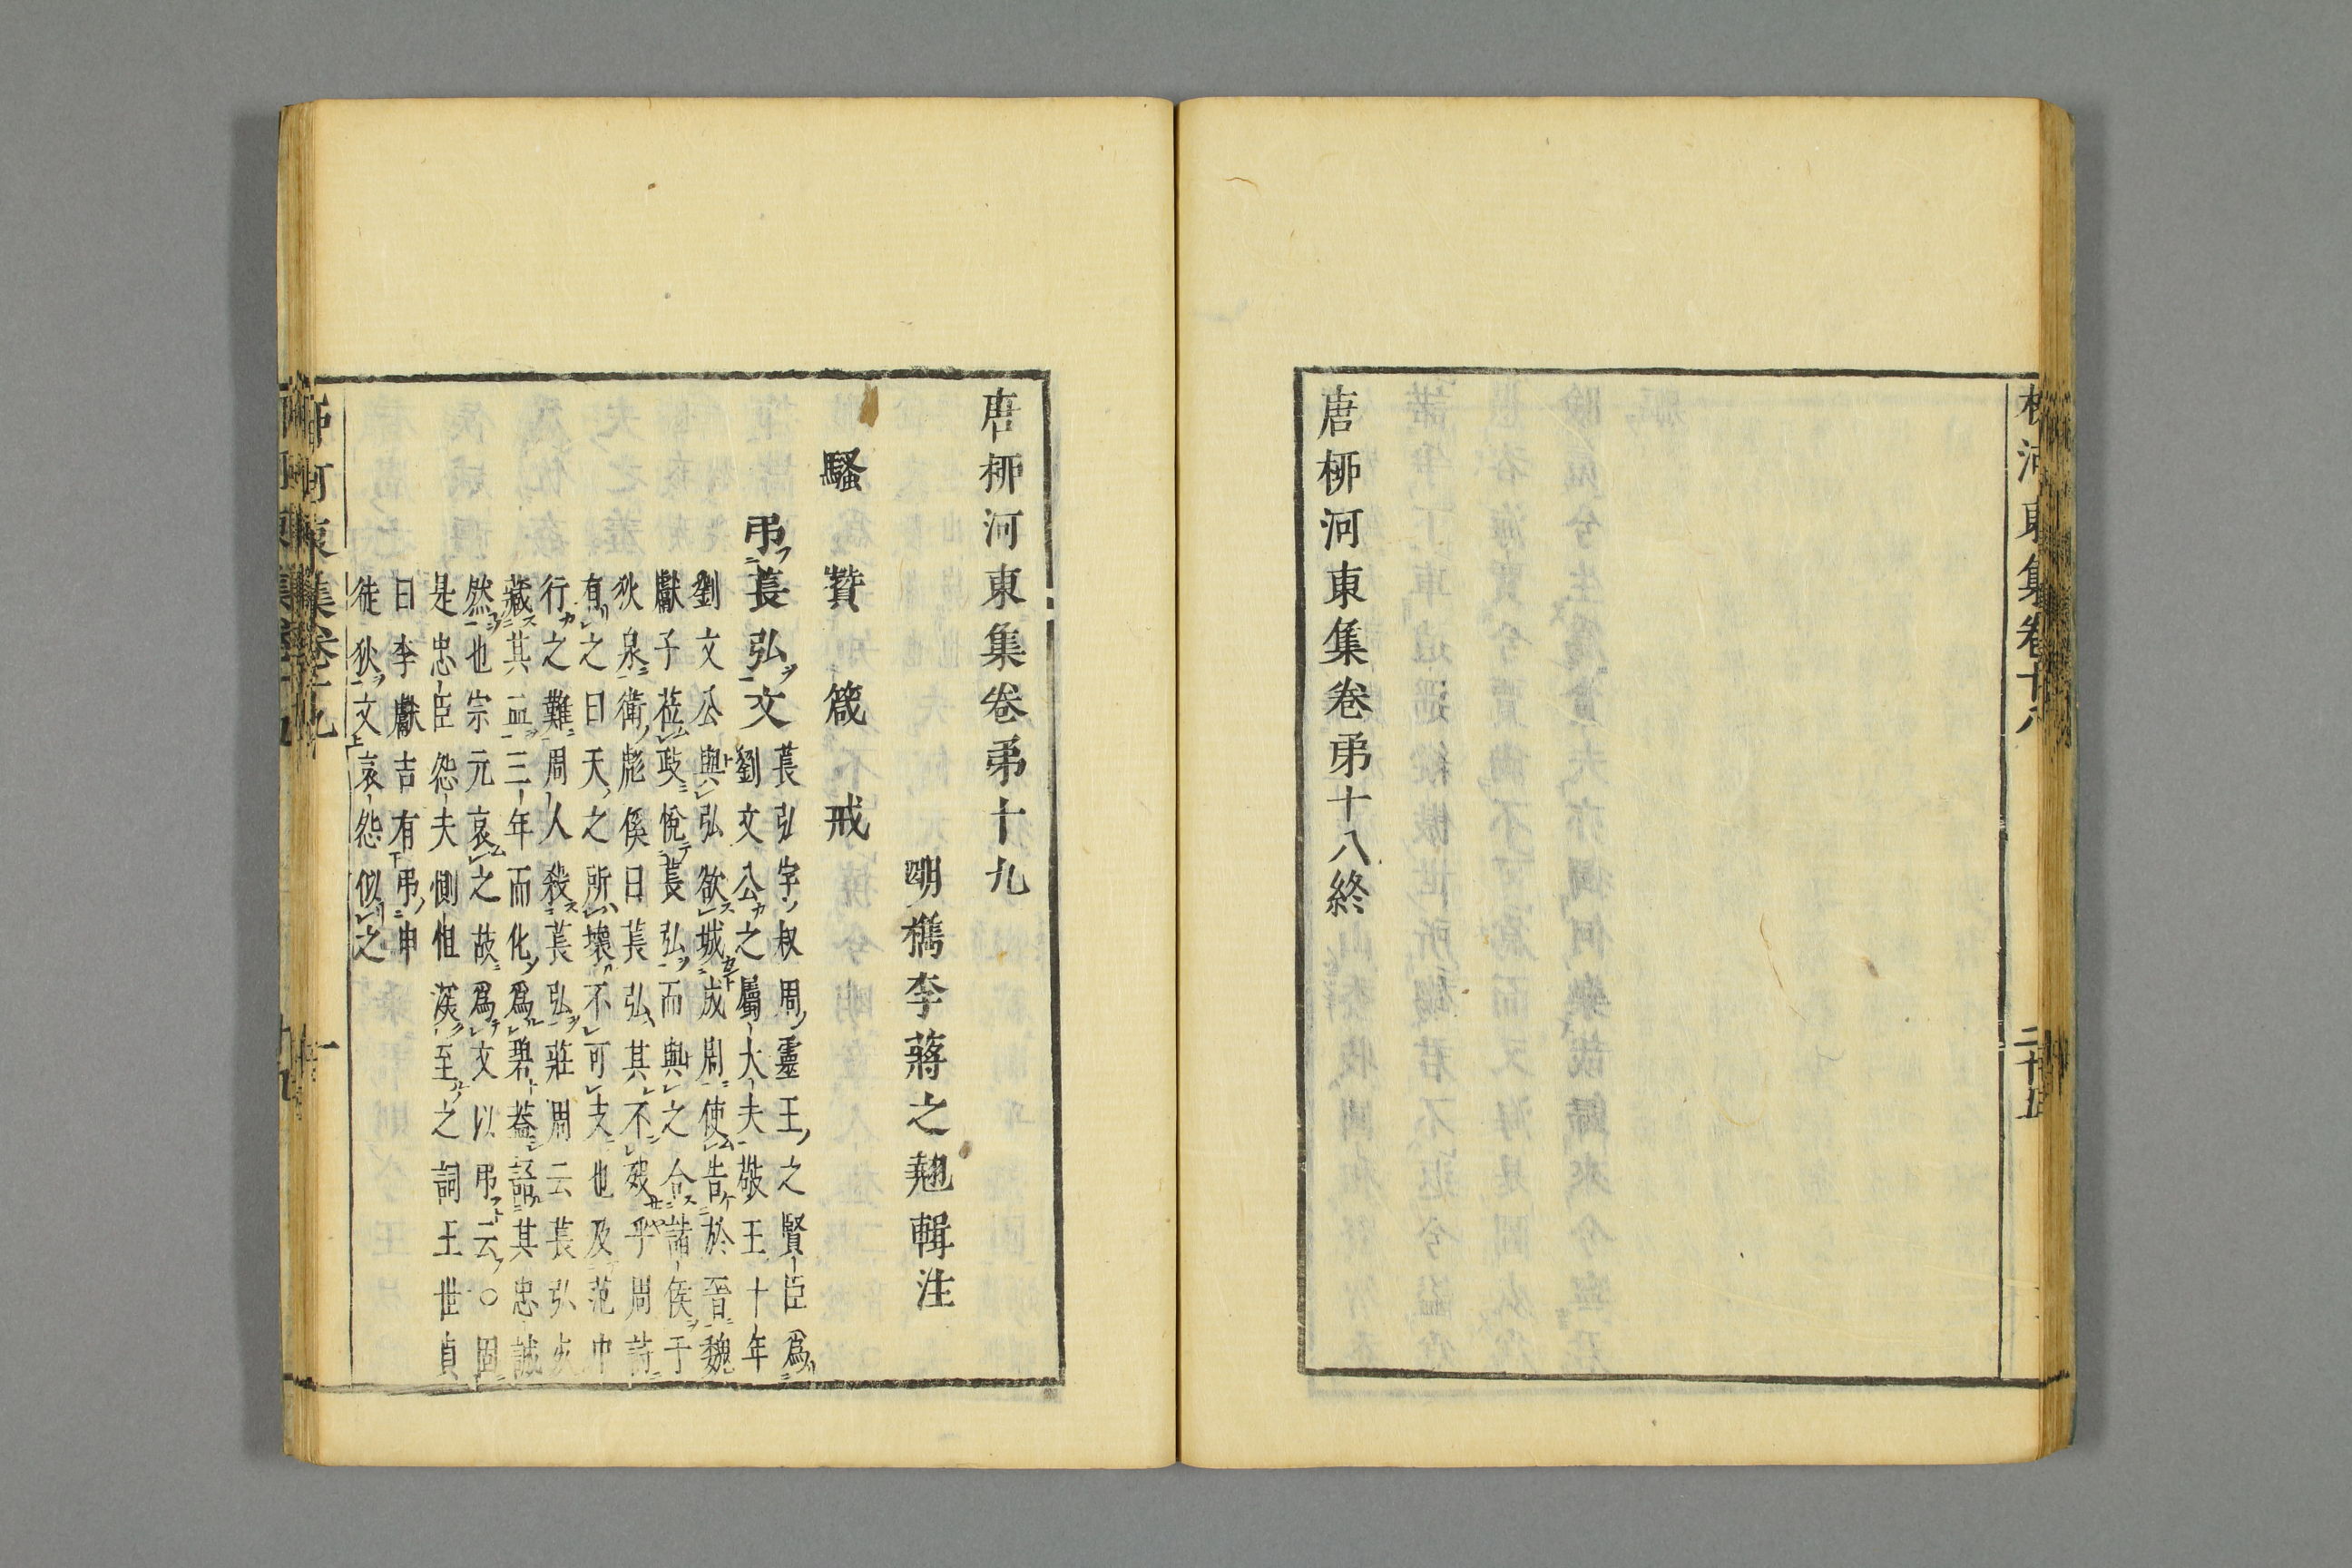 柳河東集卷十八
二十五
唐柳河東集卷苐十八終
唐柳河東集卷苐十九
明檇李蔣之翹輯注
騷 贊 箴 戒
弔萇弘文
萇弘字叔周靈王之賢臣爲
劉文公之屬大夫敬王十年
劉文公與弘欲城成周使告於晉魏
獻子莅政悅萇弘而與之合諸侯于
狄泉衛彪傒曰萇弘其不歿乎周詩
有之曰天之所壞不可支也及范中
行之難周人殺萇弘莊周云萇弘死
藏其血三年而化爲碧葢語其忠誠
然也宗元哀之故爲文以弔云○固
是忠臣怨夫惻怛深至之詞王世貞
曰李獻吉有弔申
徒狄文哀怨似之
柳河東集卷十九
一